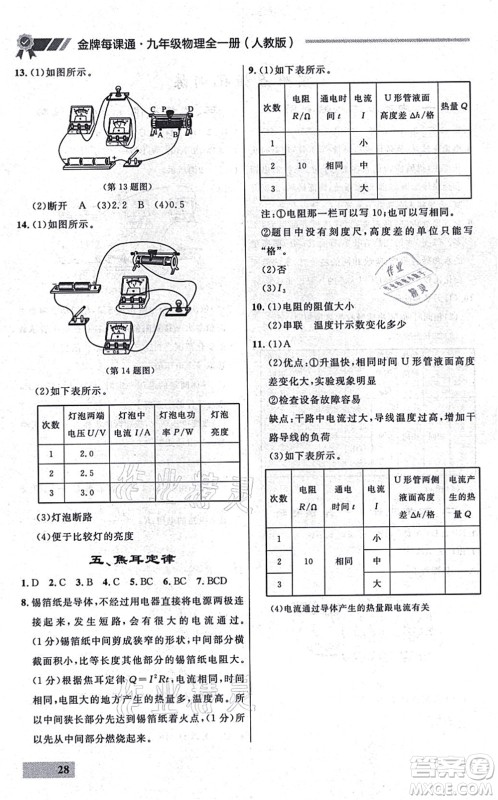 金牌每课通·九年级物理全一册（人教版）
13. (1)如图所示。
C P D
A B
(第13题图)
(2)断开 A (3)2.2 B (4)0.5
14. (1)如图所示。
(第14题图)
(2)如下表所示。
次数 灯泡两端电压U/V 灯泡中电流I/A 灯泡电功率P/W 灯泡亮度
1 2.0
2 2.5
3 3.0
(3)灯泡断路
(4)便于比较灯的亮度
五、焦耳定律
1. D 2. C 3. B 4. C 5. BC 6. BC 7. BCD
8. 锡箔纸是导体，不经过用电器直接将电源两极连
接起来，发生短路，会引起电路中电流过大。
(1分)锡箔纸中间剪成狭窄的形状，中间部分横
截面积较小，所以锡箔纸中间部分电阻较大。
(1分)根据焦耳定律Q=I²Rt，电流相同，时间相
同，电阻大的地方产生的热量多，温度高，(1分)
达到锡箔纸着火点，锡箔纸着火，(1分)所以锡箔
纸从中间部分燃烧起来。
28
9. (1)如下表所示。
次数 电阻R/Ω 通电时间t 电流I U形管液面高度差Δh/格 热量Q
1 小
2 10 相同 中
3 大
注：①电阻那一栏可以写10；也可以写相同。
②题目中没有刻度尺，高度差的单位只能写
“格”。
(2)否
(3)I₃
10. (1)电阻的阻值大小
(2)串联 温度计示数变化多少
11. (1)A
(2)优点：①升温快，相同时间U形管液面高度
差变化大，实验现象明显
②检查设备故障容易
缺点：干路中电流过大，导线温度过高，增加干
路导线的负荷
(3)如下表所示。
次数 电阻R/Ω 通电时间t 电流I/A U形管两侧液面高度差Δh/格 电流产生的热量
1 小
2 10 相同 中
3 大
(4)电流通过导体产生的热量跟电流有关
作业精灵
作业精灵
作业精灵
答案圈
MXQE.COM